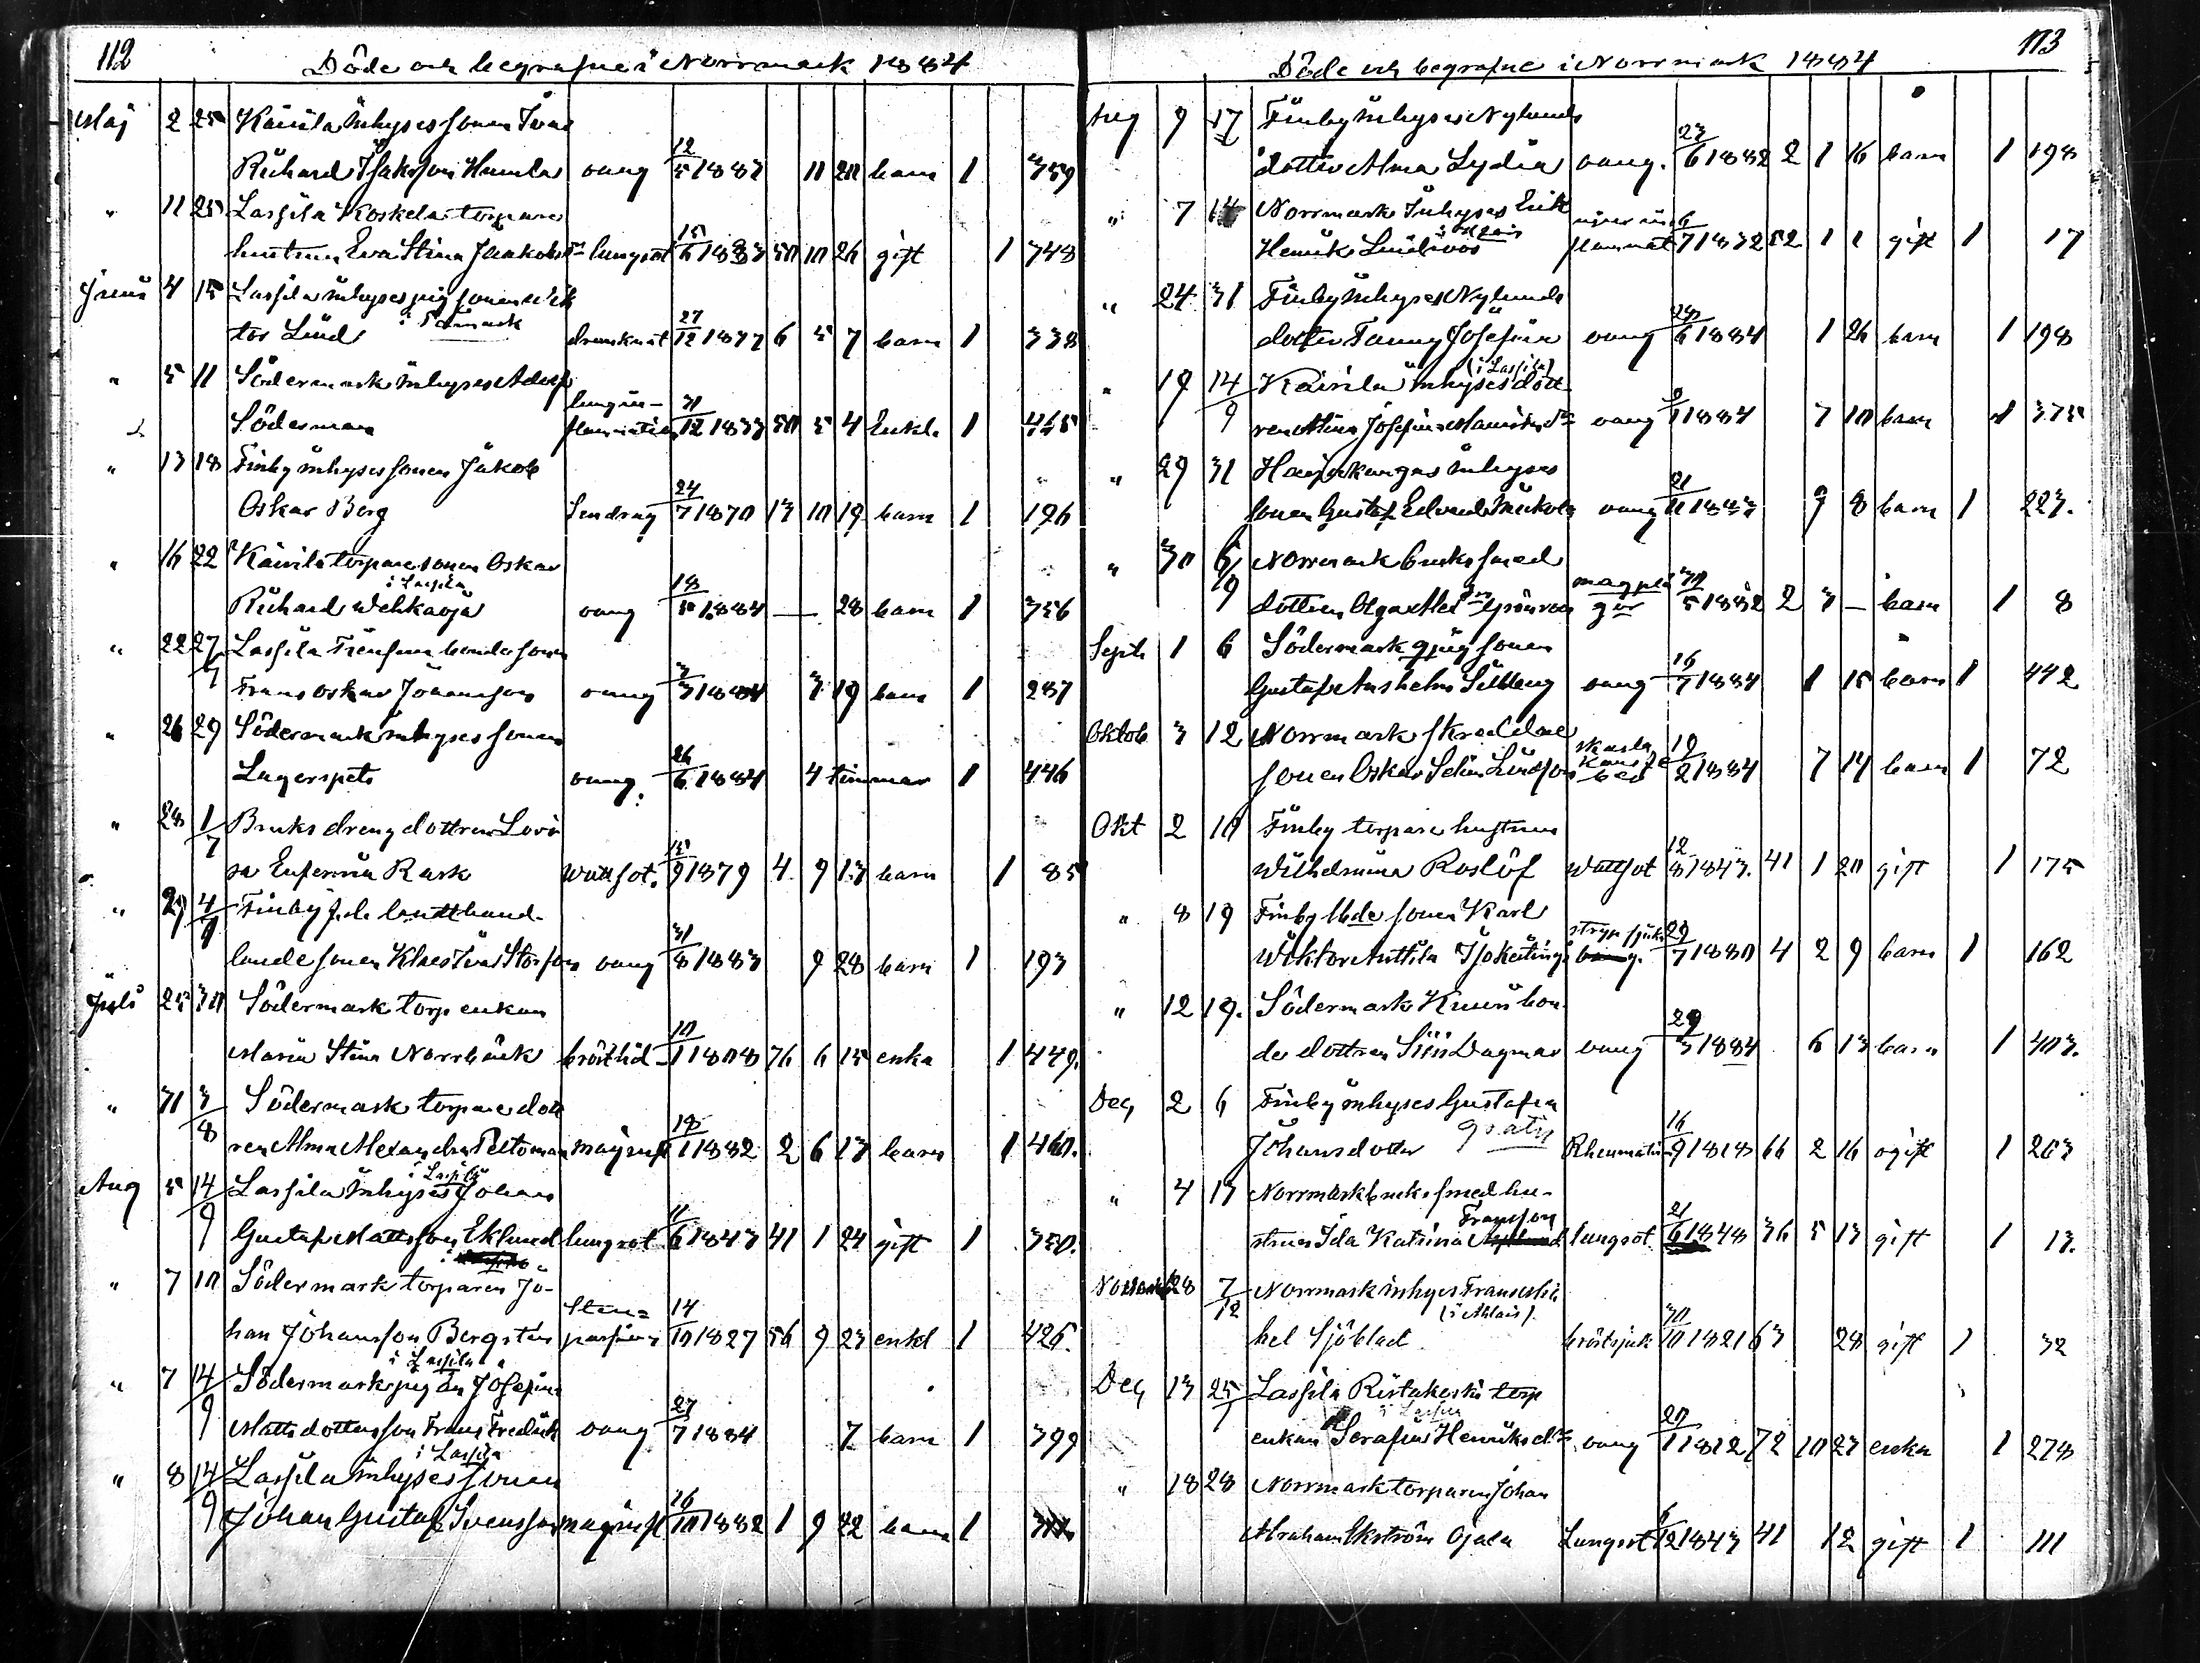 112
Döde och begrafne i Norrmark 1884
Maj 2 25 Käivilä inhyses sonen Ivar
Richard Isaksson Humla oang 12/5 1883 11 20 barn 1 359
" 11 25 Lassila Koskela torpare
hustrun Eva Stina Jaakobs dr lungsot 15/6 1833 50 10 26 gift 1 348
Juni 4 15 Lassila inhyses pig sonen Wik
tor Lind i Påmark drunknat 27/12 1877 6 5 7 barn 1 338
" 5 11 Södermark inhyses Adolf
Söderman lungin-flammation 31/12 1833 50 5 4 Enkl. 1 465
" 13 18 Finby inhyses sonen Jakob
Oskar Berg Sendrag 24/7 1870 13 10 19 barn 1 196
" 16 22 Käivilä torpare sonen Oskar
i Lassila
Richard Wehkaoja oang 18/5 1884 — 28 barn 1 356
" 22 27/7 Lassila bonde sonen
Frans Oskar Johansson oang 3/3 1884 3 19 barn 1 287
" 26 29 Södermark inhyses sonen
Lagerspets oang. 26/6 1884 4 timmar 1 446
" 28 1/7 Bruks dreng dottren Lovi
sa Eufemia Rask Wattsot. 15/9 1879 4 9 13 barn 1 85
" 29 4/9 Finby f.d. landthand-
lande sonen Klaes Ivar oang 31/8 1883 9 28 barn 1 193
Juli 25 30 Södermark torp enkan
Maria Stina Norrbäck bröstlid 10/1 1808 76 6 15 enka 1 449.
" 31 3/8 Södermark torpare dott
ren Alma Alexandra Peltoman maginfl 18/1 1882 2 6 13 barn 1 460.
Aug 5 14/9 Lassila inhyses Johan
i Lassila
Gustaf Mattsson Eklund lungsot 11/6 1843 41 1 24 gift 1 350.
" 7 10 Södermark torparen Jo-
han Johansson Bergsten Sten-passion 14/10 1827 56 9 23 enkl 1 426.
i Lassila
" 7 14/9 Södermark pigan Josefina
Mattsdotters son Frans Fredrik oang 27/7 1884 7 barn 1 399
i Lassila
" 8 14/9 Lassila inhyses sonen
Johan Gustaf Svensson maginfl. 16/10 1882 1 9 22 barn 1
113
Döde och begrafne i Norrmark 1884
Aug 9 17 Finby inhyses Nylunds
dotter Alma Lydia oang. 23/6 1882 2 1 16 barn 1 198
" 7 14 Norrmark Inhyses Erik
Henrik Lindroos 6/7 1832 52 1 1 gift 1 17
" 24 31 Finby inhyses Nylunds
dotter Fanny Josefina oang 28/6 1884 1 26 barn 1 198
(i Lassila)
" 19 14/9 Käivilä inhyses dott
ren Stina Josefina dr oang 9/1 1884 7 10 barn 1 375
" 29 31 Harjukangas inhyses
sonen Gustaf Edvard oang 21/11 1883 9 8 barn 1 223.
" 30 6/9 Norrmark bruks smed
dottren Olga Grönroos mag plågor 30/5 1882 2 3 — barn 1 8
Sept 1 6 Södermark pig sonen
Gustaf Anshelm Sillberg oang 16/7 1884 1 15 barn 1 442
Oktob 3 12 Norrmark skreddare
sonen Oskar Selim Lindfors skarlakansfeber 19/2 1884 7 14 barn 1 72
Okt 2 10 Finby torpare hustrun
Wilhelmina Roslöf Wattsot 12/8 1843. 41 1 20 gift 1 175
" 8 19 Finby bde sonen Karl
Wiktor Anttila strypsjuka 29/7 1880 4 2 9 barn 1 162
" 12 19. Södermark bon
de dottren Siiri Dagmar oang 29/3 1884 6 13 barn 1 403.
Dec 2 6 Finby inhyses Gustafva
Johansdotter gratis Rheumatis 16/9 1818 66 2 16 ogift 1 203
" 4 13 Norrmark bruks smed hu-
strun Ida Katrina Fransson lungsot. 21/6 1848 36 5 13 gift 1 13.
Novemb 28 7/12 Norrmark inhyses Frans Mi
(i Ahlais).
kel Sjöblad bröstsjuk 30/10 1821 63 28 gift 1 32
Dec 13 25/1 Lassila Ristakoski torp
enkan Serafia Henriksdr. oang 20/1 1812 72 10 23 enka 1 278
" 18 28 Norrmark torparen Johan
Abraham Ekström Ojala Lungsot 6/12 1843 41 12 gift 1 111